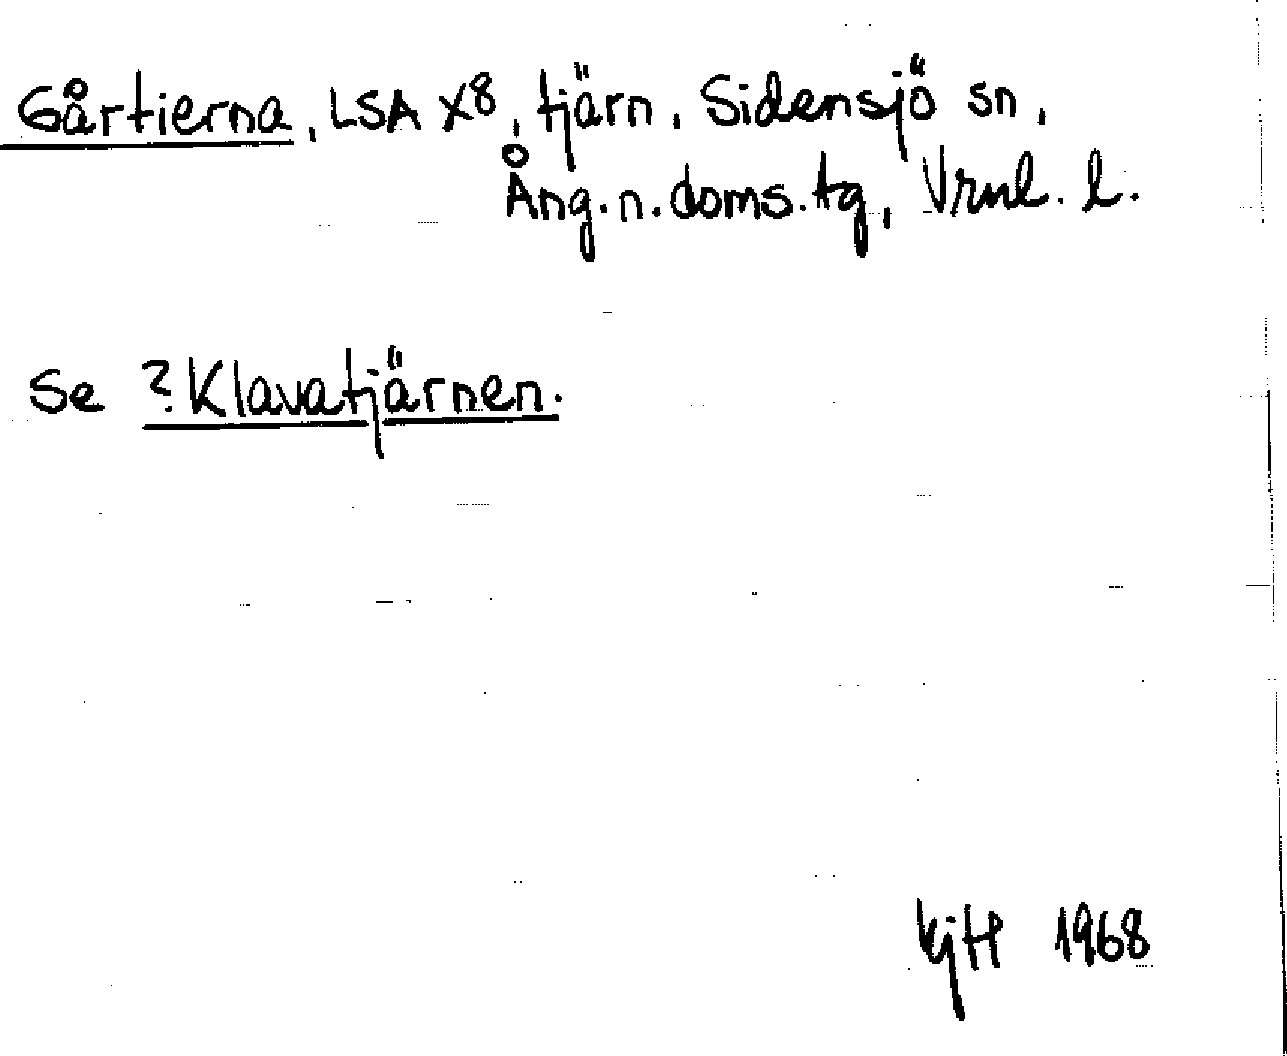 Gårtierna, LSA X8, tjärn, Sidensjö sn,
Ång.n.doms.tg, Vrnl. l.
Se ?Klavatjärnen.
KjH 1968